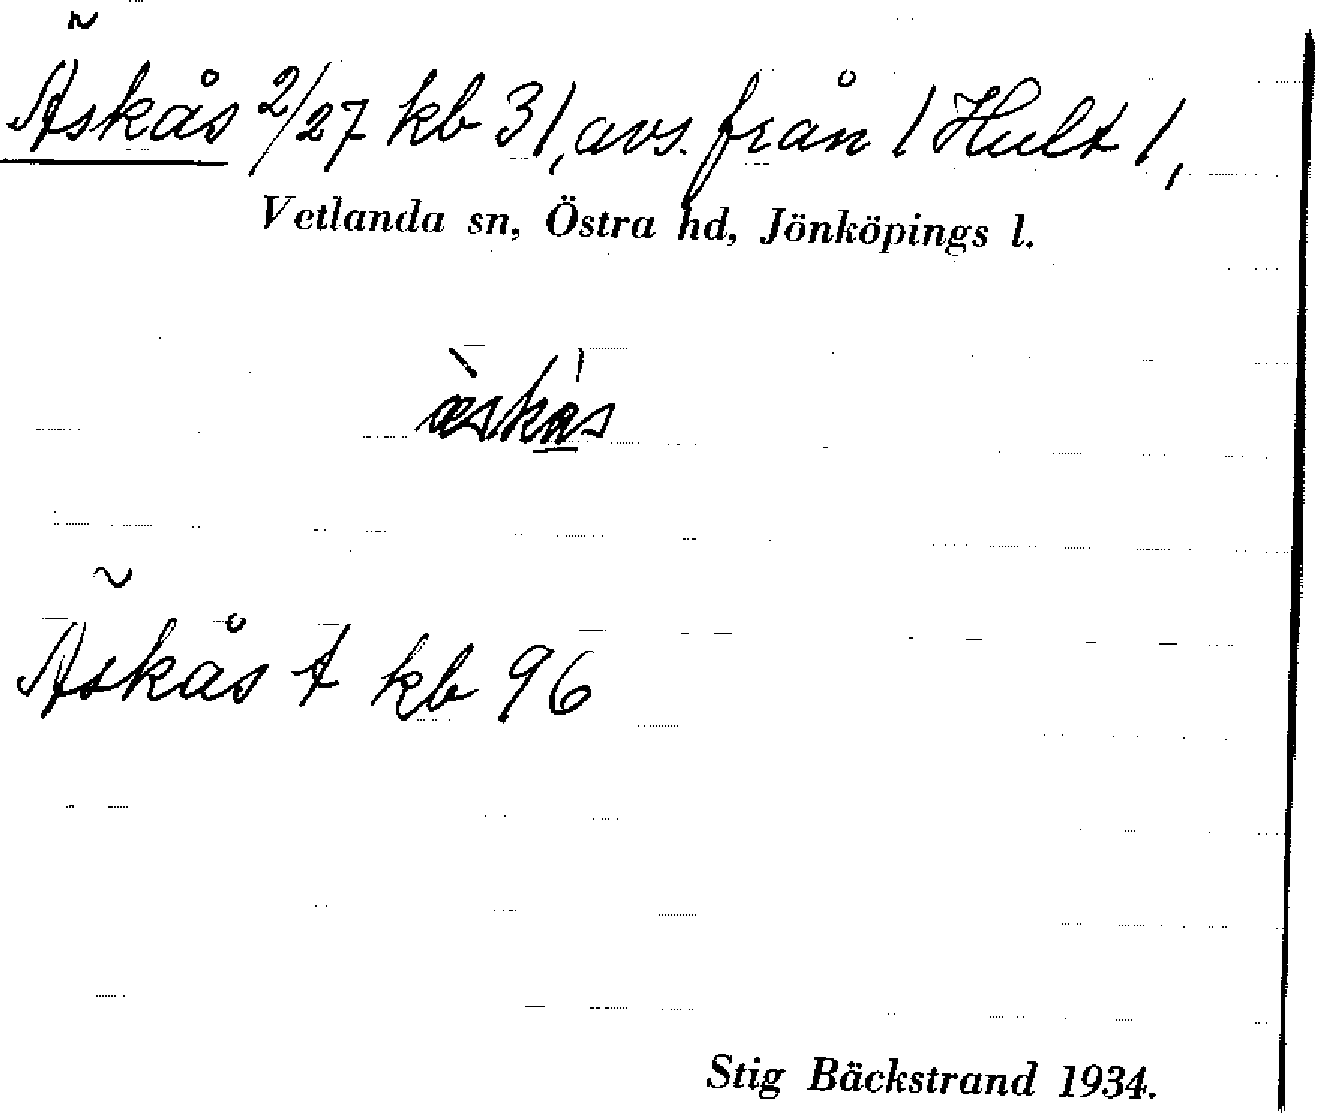 Äskås 2/27 kb 31, avs. från 1 Hult 1,
Vetlanda sn, Östra hd, Jönköpings l.
ä̀skås
Äskås t kb 96
Stig Bäckstrand 1934.